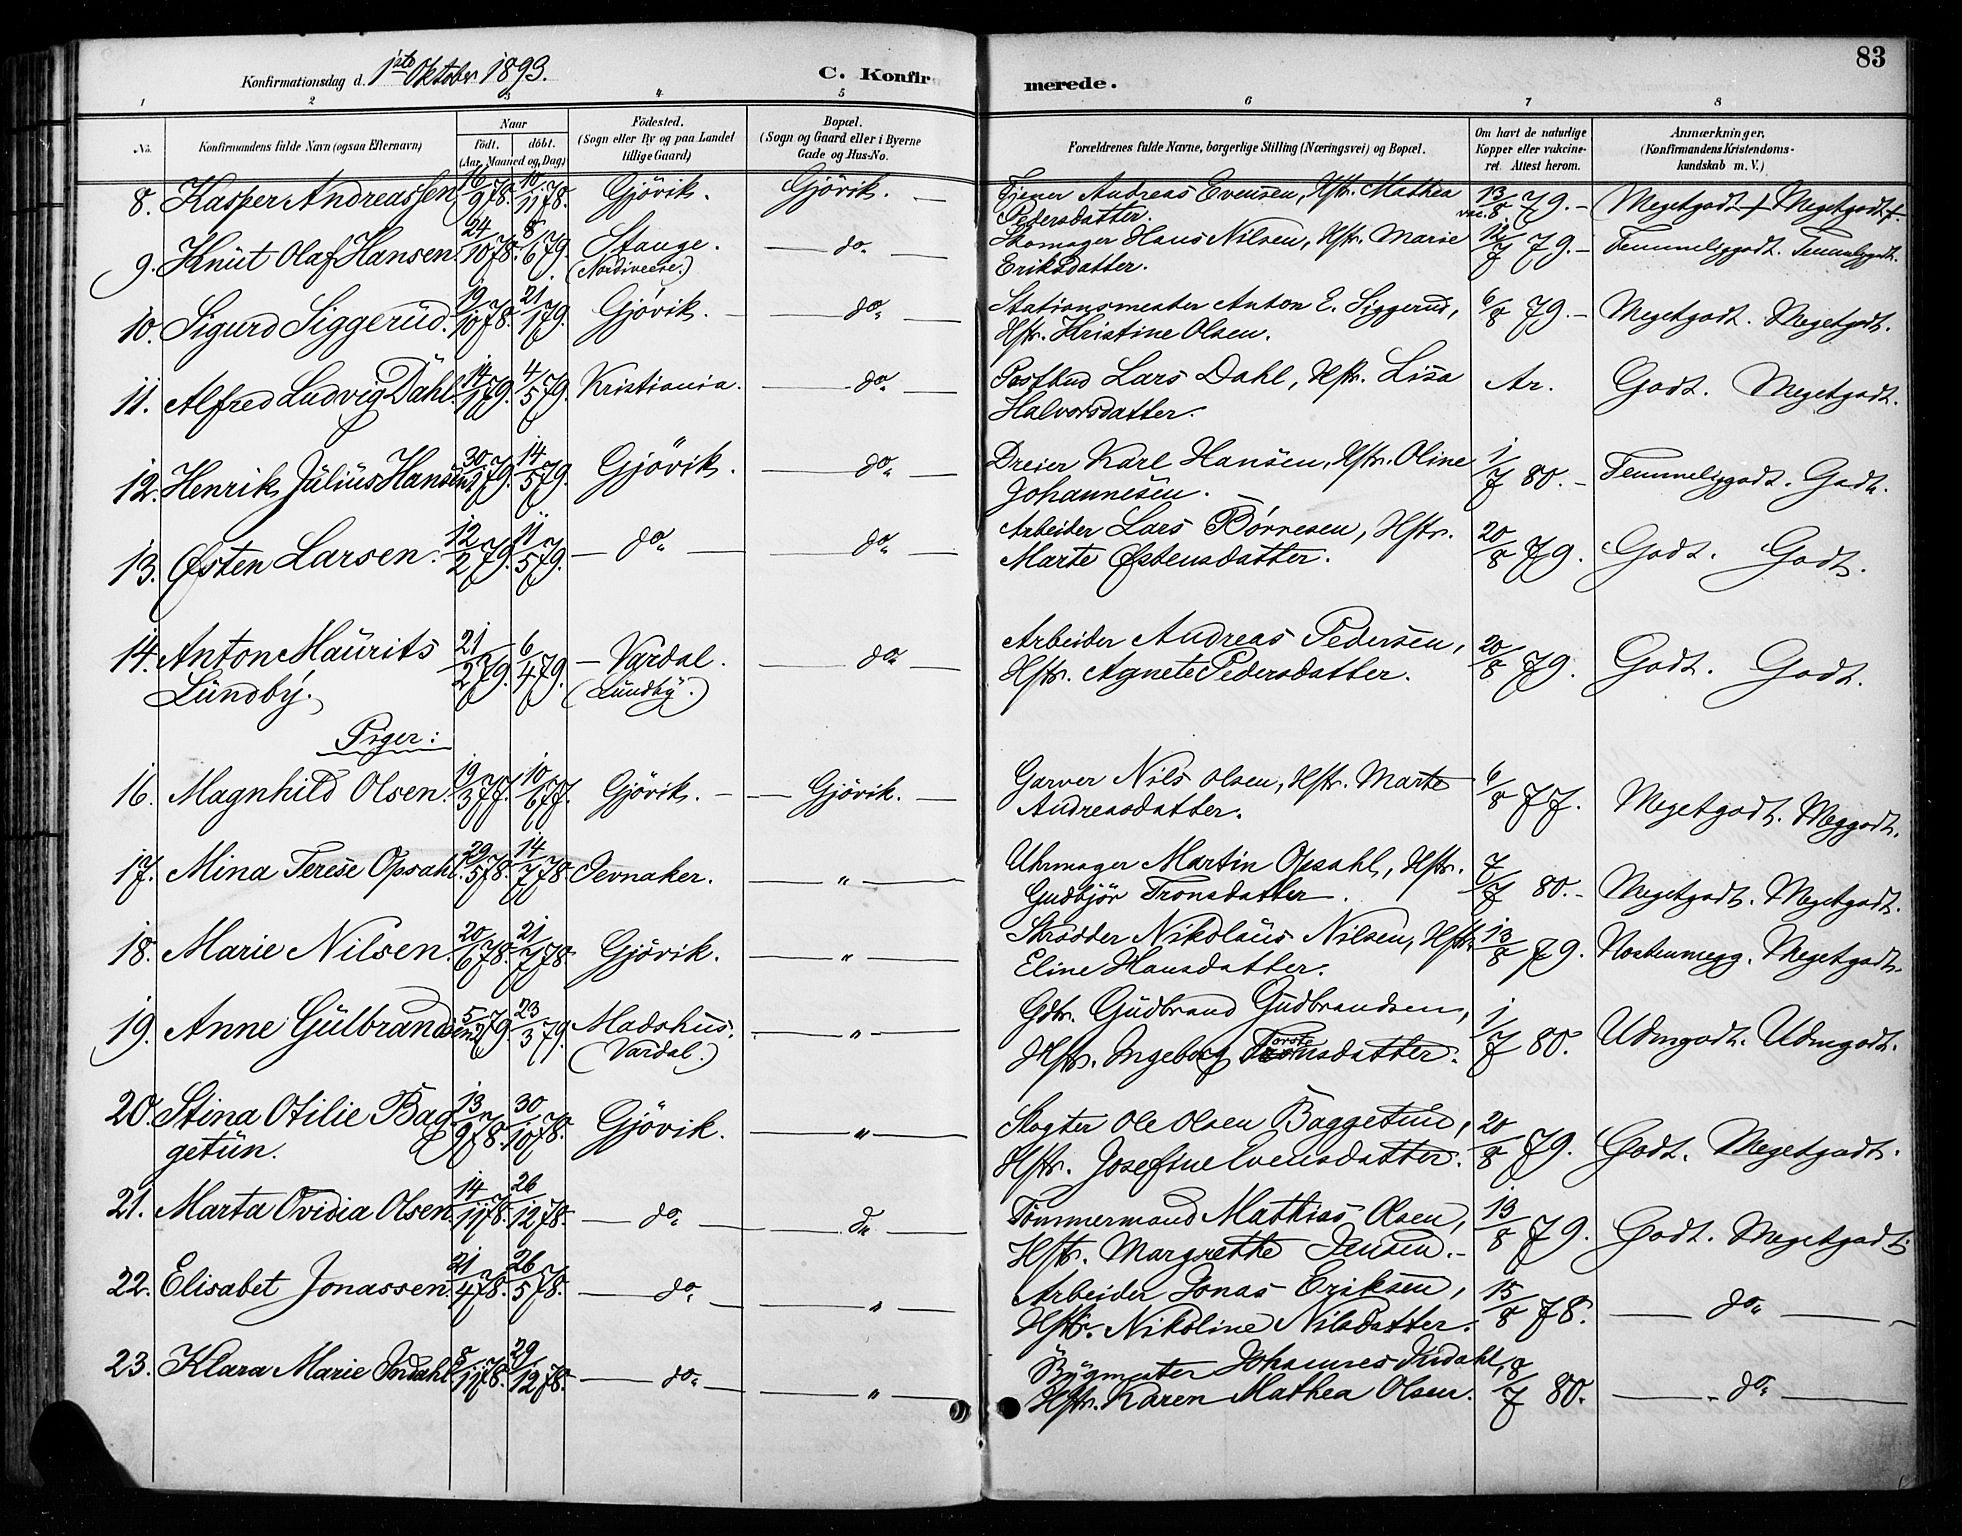 83
Konfirmationsdag d. 1ste Oktober 1893.
C. Konfirmerede.
1 2 3 4 5 6 7 8
No.
Konfirmandens fulde Navn (ogsaa Efternavn)
Naar
født. døbt.
(Aar, Maaned og Dag)
Fødested.
(Sogn eller By og paa Landet
tillige Gaard)
Bopæl.
(Sogn og Gaard eller i Byerne
Gade og Hus-No.
Forældrenes fulde Navne, borgerlige Stilling (Næringsvei) og Bopæl.
Om havt de naturlige
Kopper eller vakcine-
ret. Attest herom.
Anmærkninger.
(Konfirmandens Kristendoms-
kundskab m. V.)
8. Kasper Andreassen 16/9 78. 10/11 78. Gjövik. Gjövik. — Andreas Evensen, Hstr. Mathea 13/8 79. — Megetgodt + Megetgodt +
Pedersdatter. vac.
9. Knut Olaf Hansen 24/10 78. 8/6 79. Stange. — do — Skomager Hans Nilsen, Hstr. Marie 12/7 79. — Temmeliggodt. Temmeliggodt.
Eriksdatter.
10. Sigurd Siggerud. 19/10 78. 21/1 79. Gjövik. — do — Stationsmester Anton E. Siggerud, 6/8 79. — Megetgodt. Megetgodt.
Hstr. Kristine Olsen.
11. Alfred Ludvig Dahl. 14/1 79. 4/5 79. Kristiania. — do — Postbud Lars Dahl, Hstr. Lisa Ar. Godt. Megetgodt.
Halvorsdatter.
12. Henrik Julius Hansen 30/1 79. 14/5 79. Gjövik. — do — Dreier Karl Hansen, Hstr. Oline 1/7 80. — Temmeliggodt. Godt.
Johannesen.
13. Østen Larsen. 12/2 79. 11/5 79. — do — — do — Arbeider Lars Børnesen, Hstr. 20/8 79. Godt. Godt.
Marte Østensdatter.
14. Anton Maurits 21/2 79. 6/4 79. — Vardal. — do — Arbeider Andreas Pedersen, 20/8 79. Godt. Godt.
Lundby. (Lundby.) Hstr. Agnete Pedersdatter.
Piger:
16. Magnhild Olsen. 19/3 77. 10/6 77. Gjövik. — — Gjövik. — Garver Nils Olsen, Hstr. Marte 6/8 77. Megetgodt. Meggodt.
Andreasdatter.
17. Mina Terese Opsahl. 29/5 78. 14/7 78. Jevnaker. — " — Uhrmager Martin Opsahl, Hstr. 7/7 80. — Megetgodt. Megetgodt.
Gudbjör Tronsdatter.
18. Marie Nilsen. 20/6 78. 21/7 78. Gjövik. — " — Skrödder Nikolaus Nilsen, Hstr. 13/8 79. Nostenmegg. Megetgodt.
Eline Hansdatter.
19. Anne Gulbrandsen. 5/2 79. 23/3 79. Madshus. — " — Gdbr. Gudbrand Gudbrandsen, 1/7 80. Udmgodt. Udmgodt.
(Vardal.) Hstr. Ingeborg Torstensdatter.
20. Stina Otilie Bag- 13/9 78. 30/10 78. Gjövik. — " — Ole Olsen Baggetun, 20/8 79. Godt. Megetgodt.
getun. Hstr. Josefine Evensdatter.
21. Marta Ovidia Olsen. 14/11 78. 26/12 78. — do — — do — Tömmermand Mathias Olsen, 13/8 79. Godt. Megetgodt.
Hstr. Margrethe Jensen. —
22. Elisabet Jonassen. 21/4 78. 26/5 78. — do — — " — Arbeider Jonas Eriksen, 15/8 78. — do —
Hstr. Nikoline Nilsdatter.
23. Klara Marie 8/11 78. 29/12 78. — do — — " — Bygmester Johannes 8/7 80. — do —
Hstr. Karen Mathea Olsen.